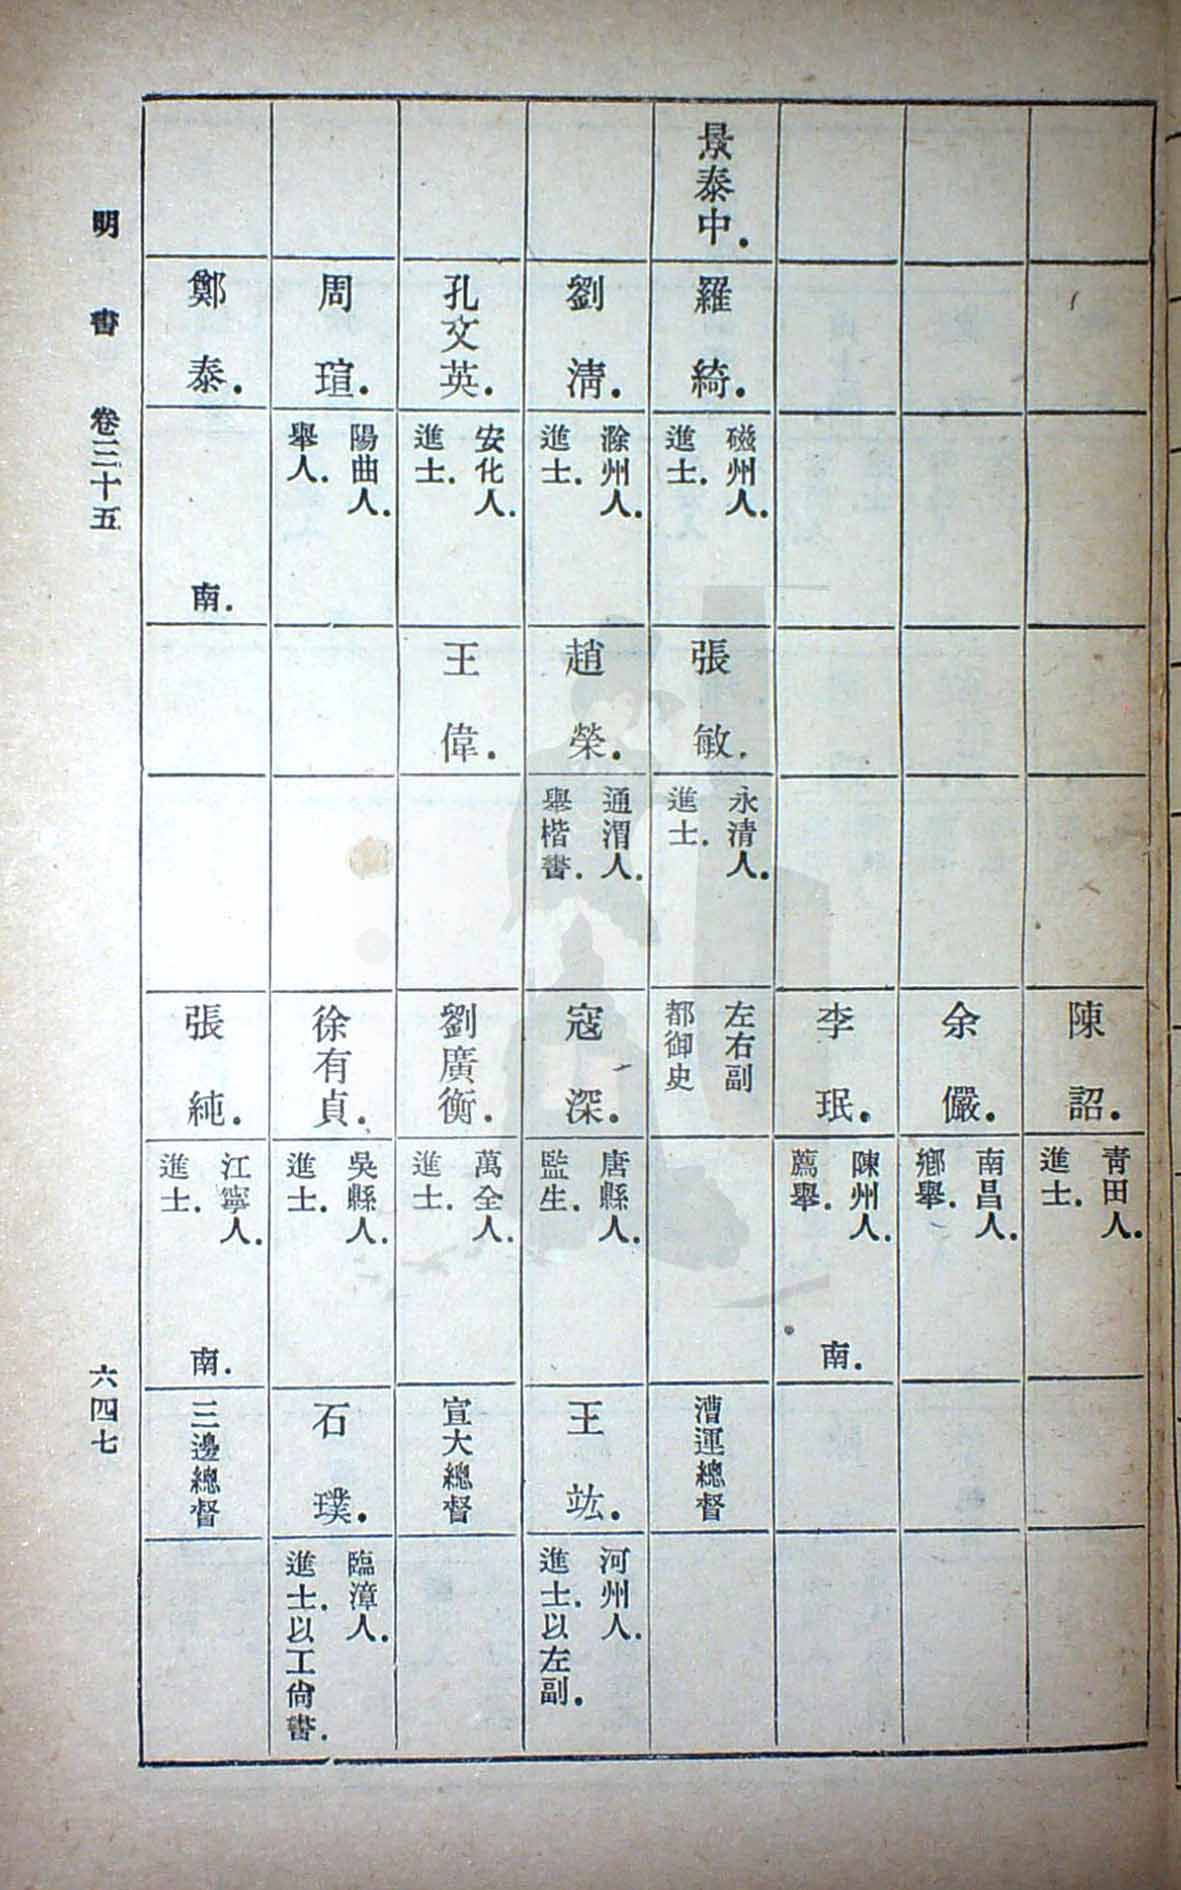 陳詔．
青田人．
進士．
余儼．
南昌人．
鄉舉．
李珉．
陳州人．
薦舉．
南．
景泰中．
羅綺．
磁州人．
進士．
張敏．
永清人．
進士．
左右副
都御史
漕運總督
劉清．
滁州人．
進士．
趙榮．
通渭人．
舉楷書．
寇深．
唐縣人．
監生．
王竑．
河州人．
進士．以左副．
孔文英．
安化人．
進士．
王偉．
劉廣衡．
萬全人．
進士．
宣大總督
周瑄．
陽曲人．
舉人．
徐有貞．
吳縣人．
進士．
石璞．
臨漳人．
進士．以工尚書．
鄭泰．
南．
張純．
江寧人．
進士．
南．
三邊總督
明書 卷三十五
六四七